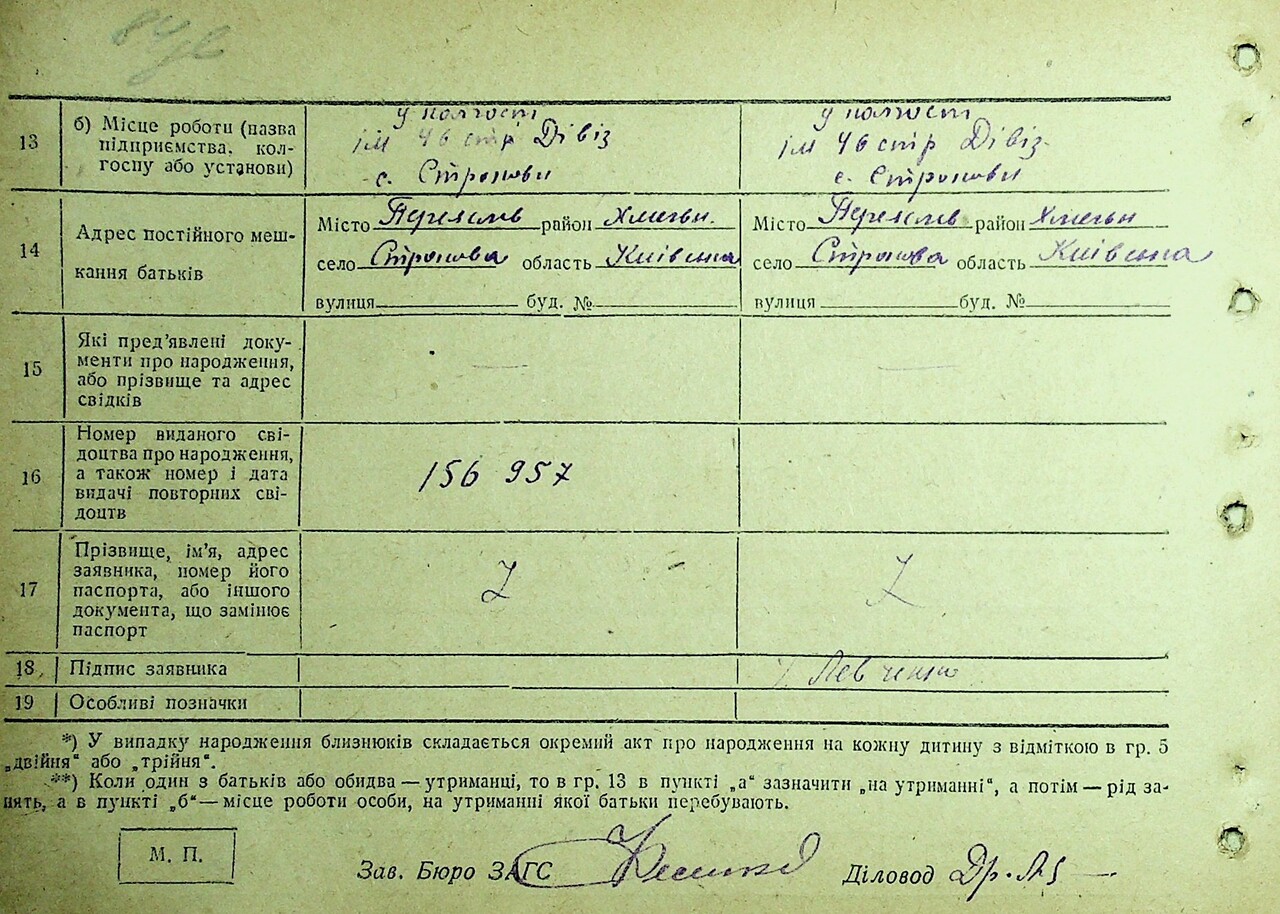 13 б) Місце роботи (назва підприємства, колгоспу або установи)
у колгосп
ім 46 стр Дівіз
с. Строкови
у колгосп
ім 46 стр Дівіз
с. Строкови
14 Адрес постійного мешкання батьків
Місто район
село Строкова область Київська
вулиця буд. №
Місто район
село Строкова область Київська
вулиця буд. №
15 Які пред'явлені документи про народження, або прізвище та адрес свідків
—
—
16 Номер виданого свідоцтва про народження, а також номер і дата видачі повторних свідоцтв
156 957
17 Прізвище, ім'я, адрес заявника, номер його паспорта, або іншого документа, що замінює паспорт
18 Підпис заявника
Левченко
19 Особливі позначки
*) У випадку народження близнюків складається окремий акт про народження на кожну дитину з відміткою в гр. 5
„двійня" або „трійня".
**) Коли один з батьків або обидва — утриманці, то в гр. 13 в пункті „а" зазначити „на утриманні", а потім — рід за-
нять, а в пункті „б" — місце роботи особи, на утриманні якої батьки перебувають.
М. П.
Зав. Бюро ЗАГС
Діловод